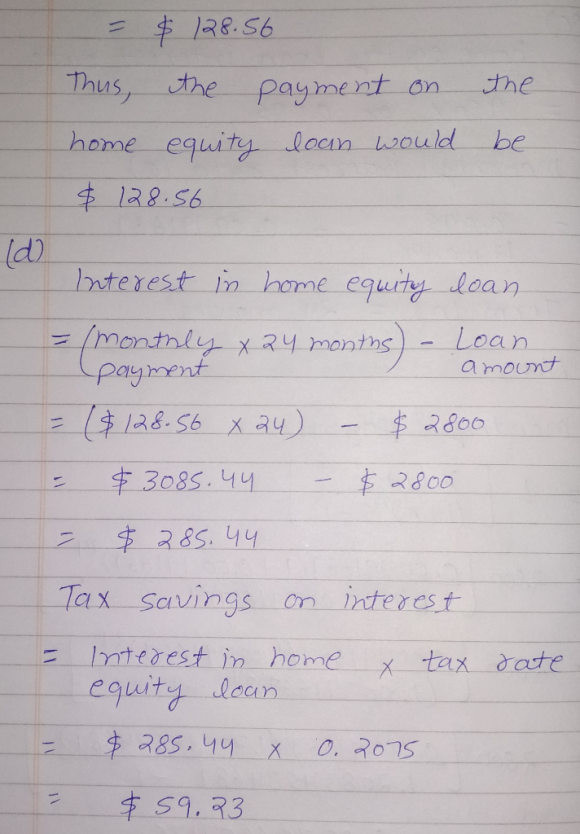 = $ 128.56
Thus, the payment on the
home equity loan would be
$ 128.56
(d)
Interest in home equity loan
= (monthly payment × 24 months) - Loan amount
= ($128.56 × 24) - $ 2800
= $ 3085.44 - $ 2800
= $ 285.44
Tax savings on interest
= Interest in home equity loan × tax rate
= $ 285.44 × 0.2075
= $ 59.23